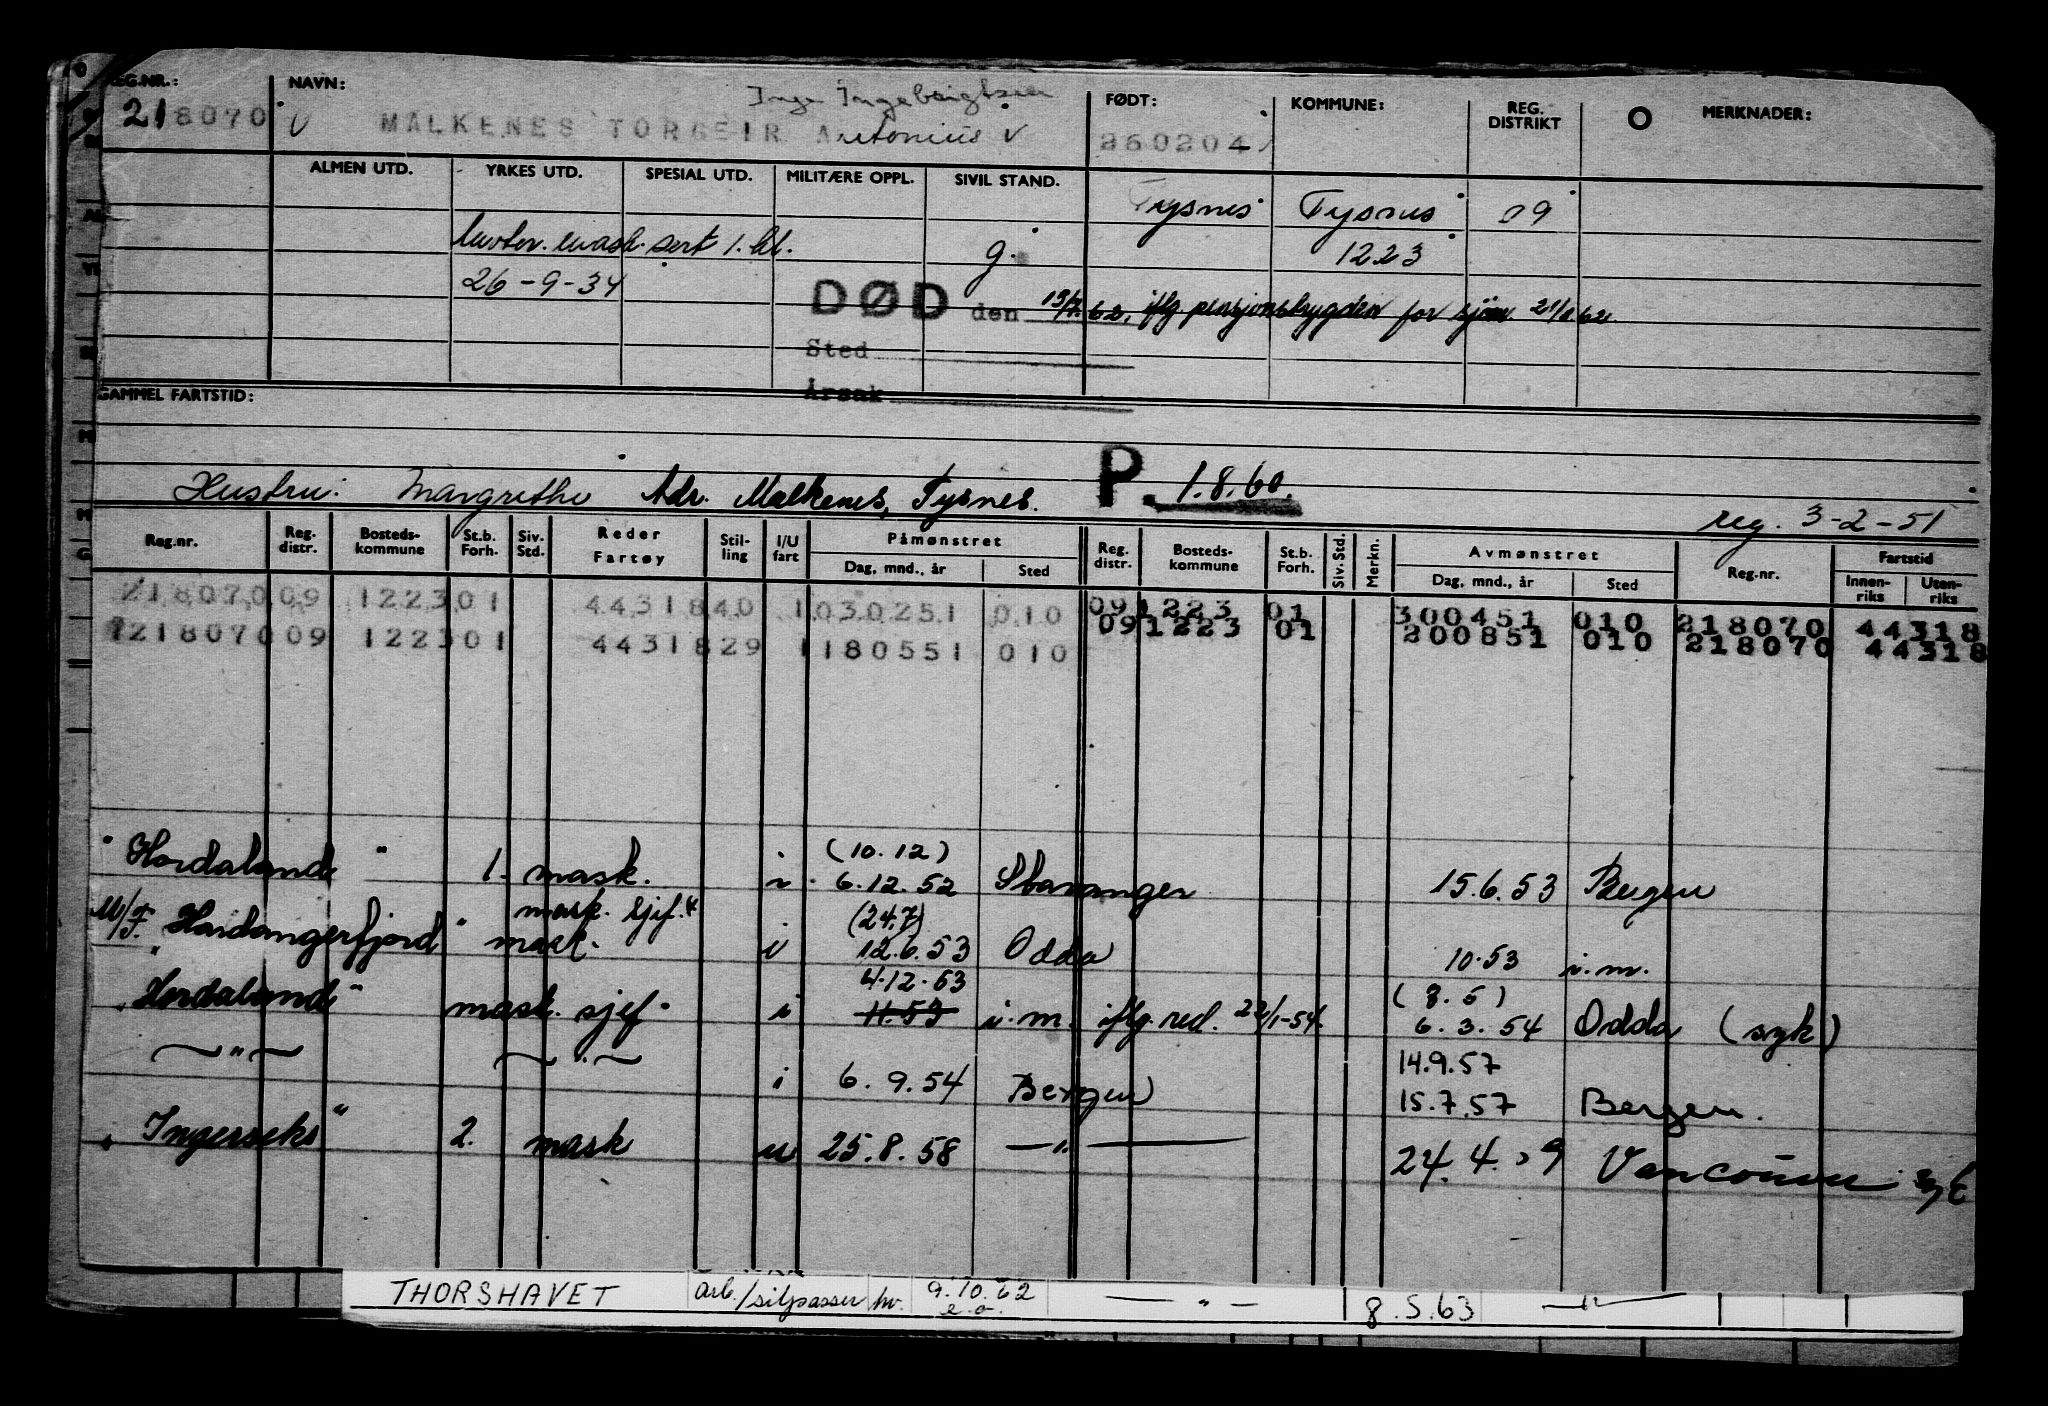 REG.NR.: NAVN: Inge Ingebrigtsen FØDT: KOMMUNE: REG. DISTRIKT MERKNADER:
218070 MALKENES TORGEIR Antonius 260204
ALMEN UTD. YRKES UTD. SPESIAL UTD. MILITÆRE OPPL. SIVIL STAND. Tysnes Tysnes 09
mask. sert 1. kl. g. 1223
26-9-34
DØD den 62, iflg. pensjonstrygden for sjøm. 62.
Sted
Årsak
GAMMEL FARTSTID:
Hustru: Margrethe Adr. Malkenes, Tysnes. P. 1.8.60.
reg. 3-2-51
Reg.nr. Reg. distr. Bosteds-kommune St.b. Forh. Siv. Std. Reder Fartøy Stil-ling I/U fart Påmønstret Reg. distr. Bosteds-kommune St.b. Forh. Siv. Std. Merkn. Avmønstret Reg.nr. Fartstid
Dag, mnd., år Sted Dag, mnd., år Sted Innen-riks Uten-riks
218070 09 1223 01 44318 40 1 030251 010 09 1223 01 300451 010 218070 44318
218070 09 1223 01 44318 29 1 180551 010 09 1223 01 200851 010 218070 44318
(10.12)
"Hordaland" 1. mask. i 6.12.52 Stavanger 15.6.53 Bergen
mask. sjef. (24.7)
M/F. Hardangerfjord" mask. i 12.6.53 Odda 10.53 i.m.
4.12.53 (8.5)
"Hordaland" mask. sjef. i 11.53 i.m. iflg. red. 22/1-54. 6.3.54 Odda (syk)
—"— —"— 14.9.57
i 6.9.54 Bergen 15.7.57 Bergen.
"Ingerseks" 2. mask u 25.8.58 —"— 24.4.59 Vancouver syk
THORSHAVET arb./silpasser hv. 9.10.62 —"— 8.5.63 —"—
e.o.